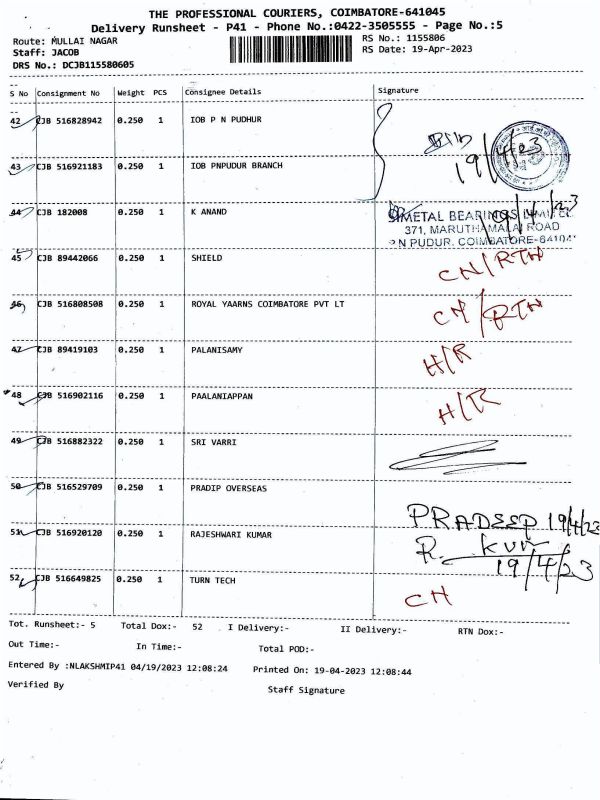 THE PROFESSIONAL COURIERS, COIMBATORE-641045
Delivery Runsheet - P41 - Phone No.:0422-3505555 - Page No.:5
Route: MULLAI NAGAR RS No.: 1155806
Staff: JACOB RS Date: 19-Apr-2023
DRS No.: DCJB115580605
S No Consignment No Weight PCS Consignee Details Signature
42 CJB 516828942 0.250 1 IOB P N PUDHUR
43 CJB 516921183 0.250 1 IOB PNPUDUR BRANCH 19/4/23
44 CJB 182008 0.250 1 K ANAND 19/4/23
BIMETAL BEARINGS LIMITED
371, MARUTHAMALAI ROAD
P N PUDUR. COIMBATORE-641041
45 CJB 89442066 0.250 1 SHIELD CN/RTN
46 CJB 516808508 0.250 1 ROYAL YAARNS COIMBATORE PVT LT CH/RTN
47 CJB 89419103 0.250 1 PALANISAMY H/R
*48 CJB 516902116 0.250 1 PAALANIAPPAN H/R
49 CJB 516882322 0.250 1 SRI VARRI
50 CJB 516529709 0.250 1 PRADIP OVERSEAS PRADEEP 19/4/23
51 CJB 516920120 0.250 1 RAJESHWARI KUMAR R. 19/4/23
52 CJB 516649825 0.250 1 TURN TECH CH
Tot. Runsheet:- 5 Total Dox:- 52 I Delivery:- II Delivery:- RTN Dox:-
Out Time:- In Time:- Total POD:-
Entered By :NLAKSHMIP41 04/19/2023 12:08:24 Printed On: 19-04-2023 12:08:44
Verified By Staff Signature